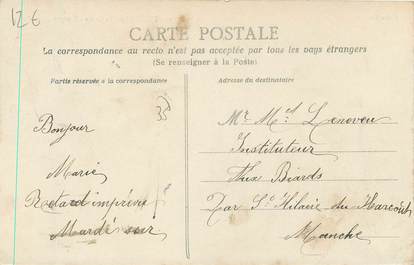 12€
CARTE POSTALE
La correspondance au recto n'est pas acceptée par tous les pays étrangers
(Se renseigner à la Poste)
Partie réservée à la correspondance
Adresse du destinataire
Bonjour
Marie
Retard imprévu
Mardi soir
Mr Lenoveu
Instituteur
Biards
Par St Hilaire du Harcouët
Manche